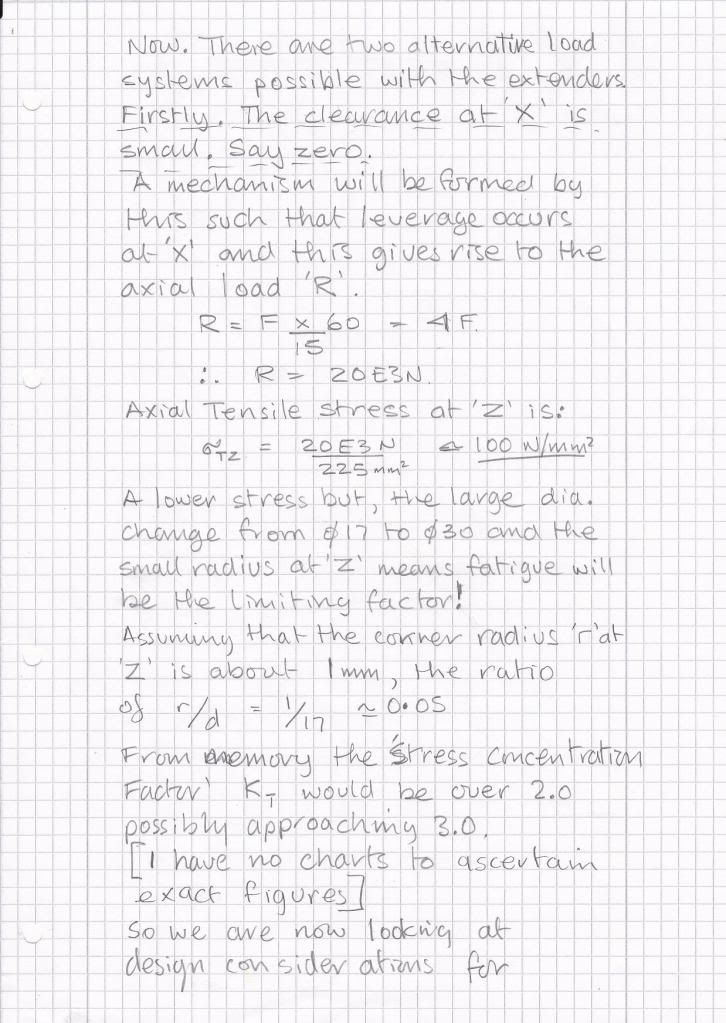 Now. There are two alternative load
systems possible with the extenders.
Firstly. The clearance at 'X' is
small. Say zero.
A mechanism will be formed by
this such that leverage occurs
at 'X' and this gives rise to the
axial load 'R'.
R = F x 60 = 4F.
15
∴ R = 20E3N.
Axial Tensile stress at 'Z' is:
σTZ = 20E3 N ≏ 100 N/mm²
225 mm²
A lower stress but, the large dia.
change from ø17 to ø30 and the
small radius at 'Z' means fatigue will
be the limiting factor!
Assuming that the corner radius 'r' at
'Z' is about 1mm, the ratio
of r/d = 1/17 ≃ 0.05
From memory the 'Stress Concentration
Factor' KT would be over 2.0
possibly approaching 3.0.
[I have no charts to ascertain
exact figures]
So we are now looking at
design considerations for